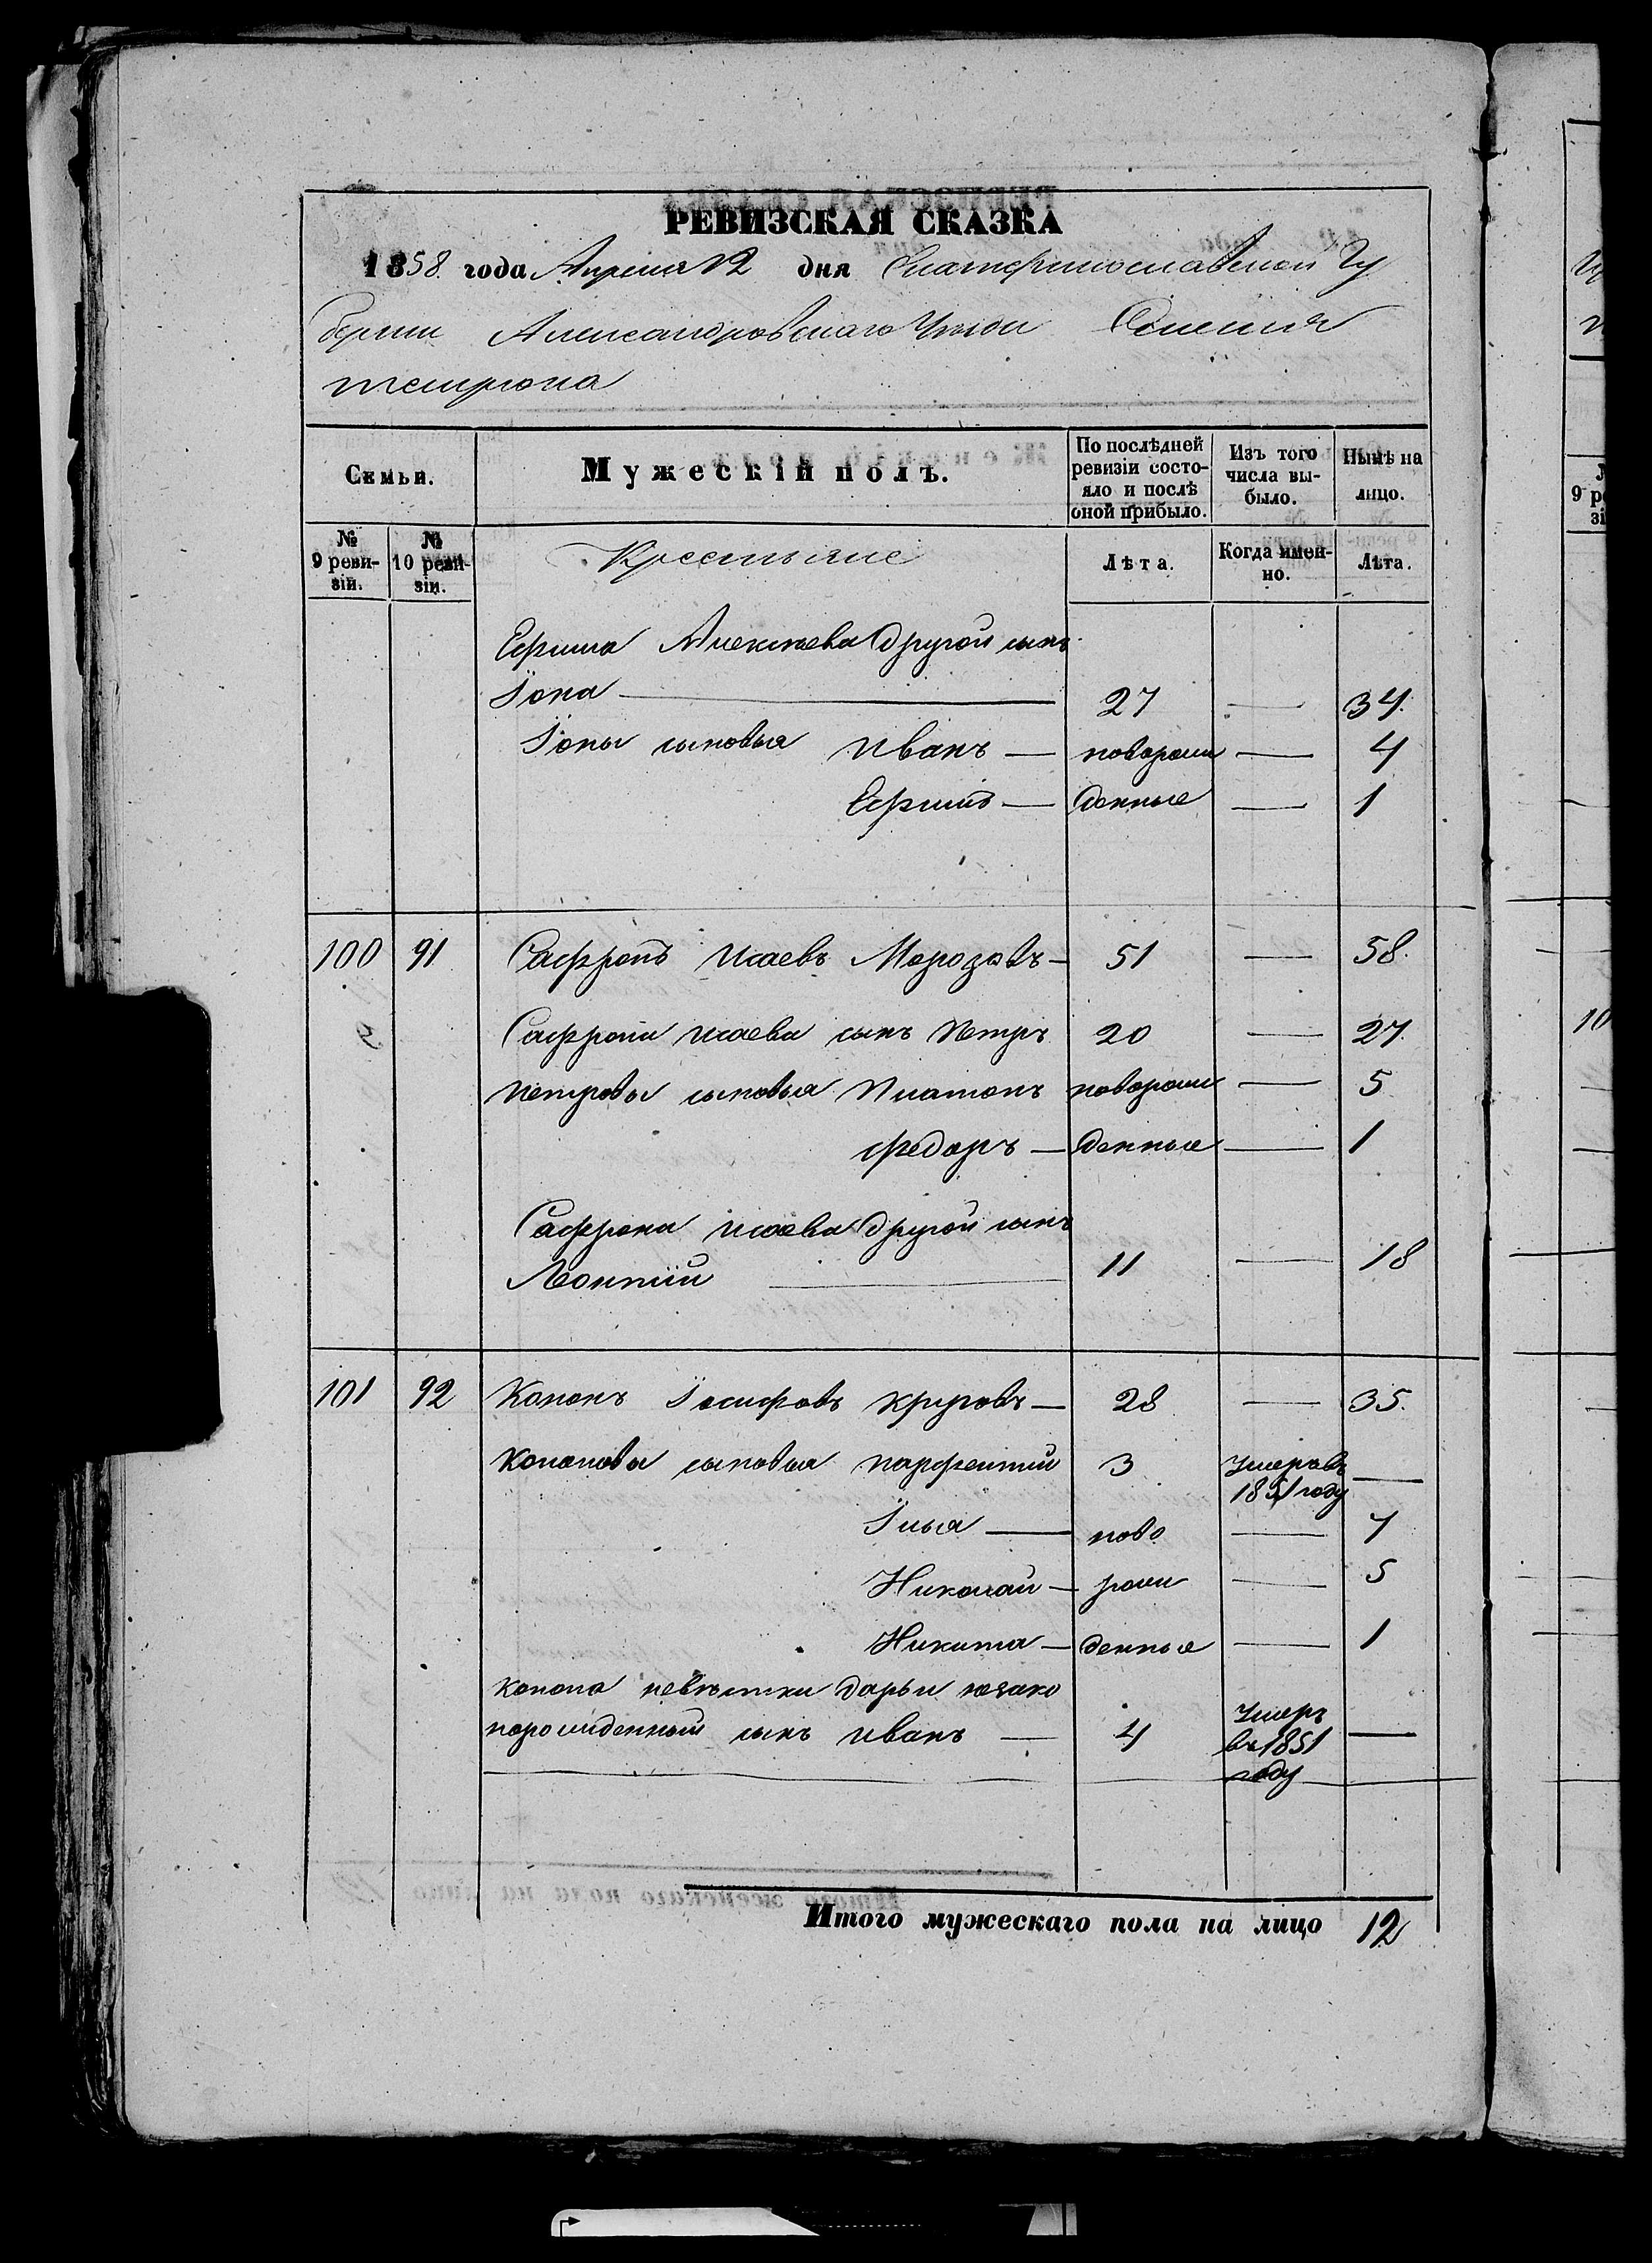 РЕВИЗСКАЯ СКАЗКА
1858 года Апреля 12 дня Екатеринославской Гу
бернии Александровскаго Уѣзда Селенія
Темрюка
Семьи.
Мужескій полъ.
По послѣдней ревизіи состояло и послѣ оной прибыло.
Изъ того числа выбыло.
Нынѣ на лицо.
№ 9 ревизіи.
№ 10 ревизіи.
Крестьяне
Лѣта.
Когда именно.
Лѣта.
Ефима Алексѣева другой сынъ
Іона — 27 — 34.
Іоны сыновья Иванъ — новорож — 4
Ефимъ — денные — 1
100 91 Сафронъ Исаевъ Морозовъ — 51 — 58.
Сафрона Исаева сынъ Петръ 20 — 27.
Петровы сыновья Платонъ новорож — 5
Федоръ — денные — 1
Сафрона Исаева другой сынъ
Леонтій — 11 — 18
101 92 Кононъ Іосифовъ Круговъ — 28 — 35.
Кононовы сыновья Парфентий 3 Умеръ въ 1851 году —
Илья — ново — 7
Николай — рож — 5
Никита — денные — 1
Конона невѣстки Дарьи незако
норожденный сынъ Иванъ — 4 Умеръ въ 1851 году —
Итого мужескаго пола на лицо 12